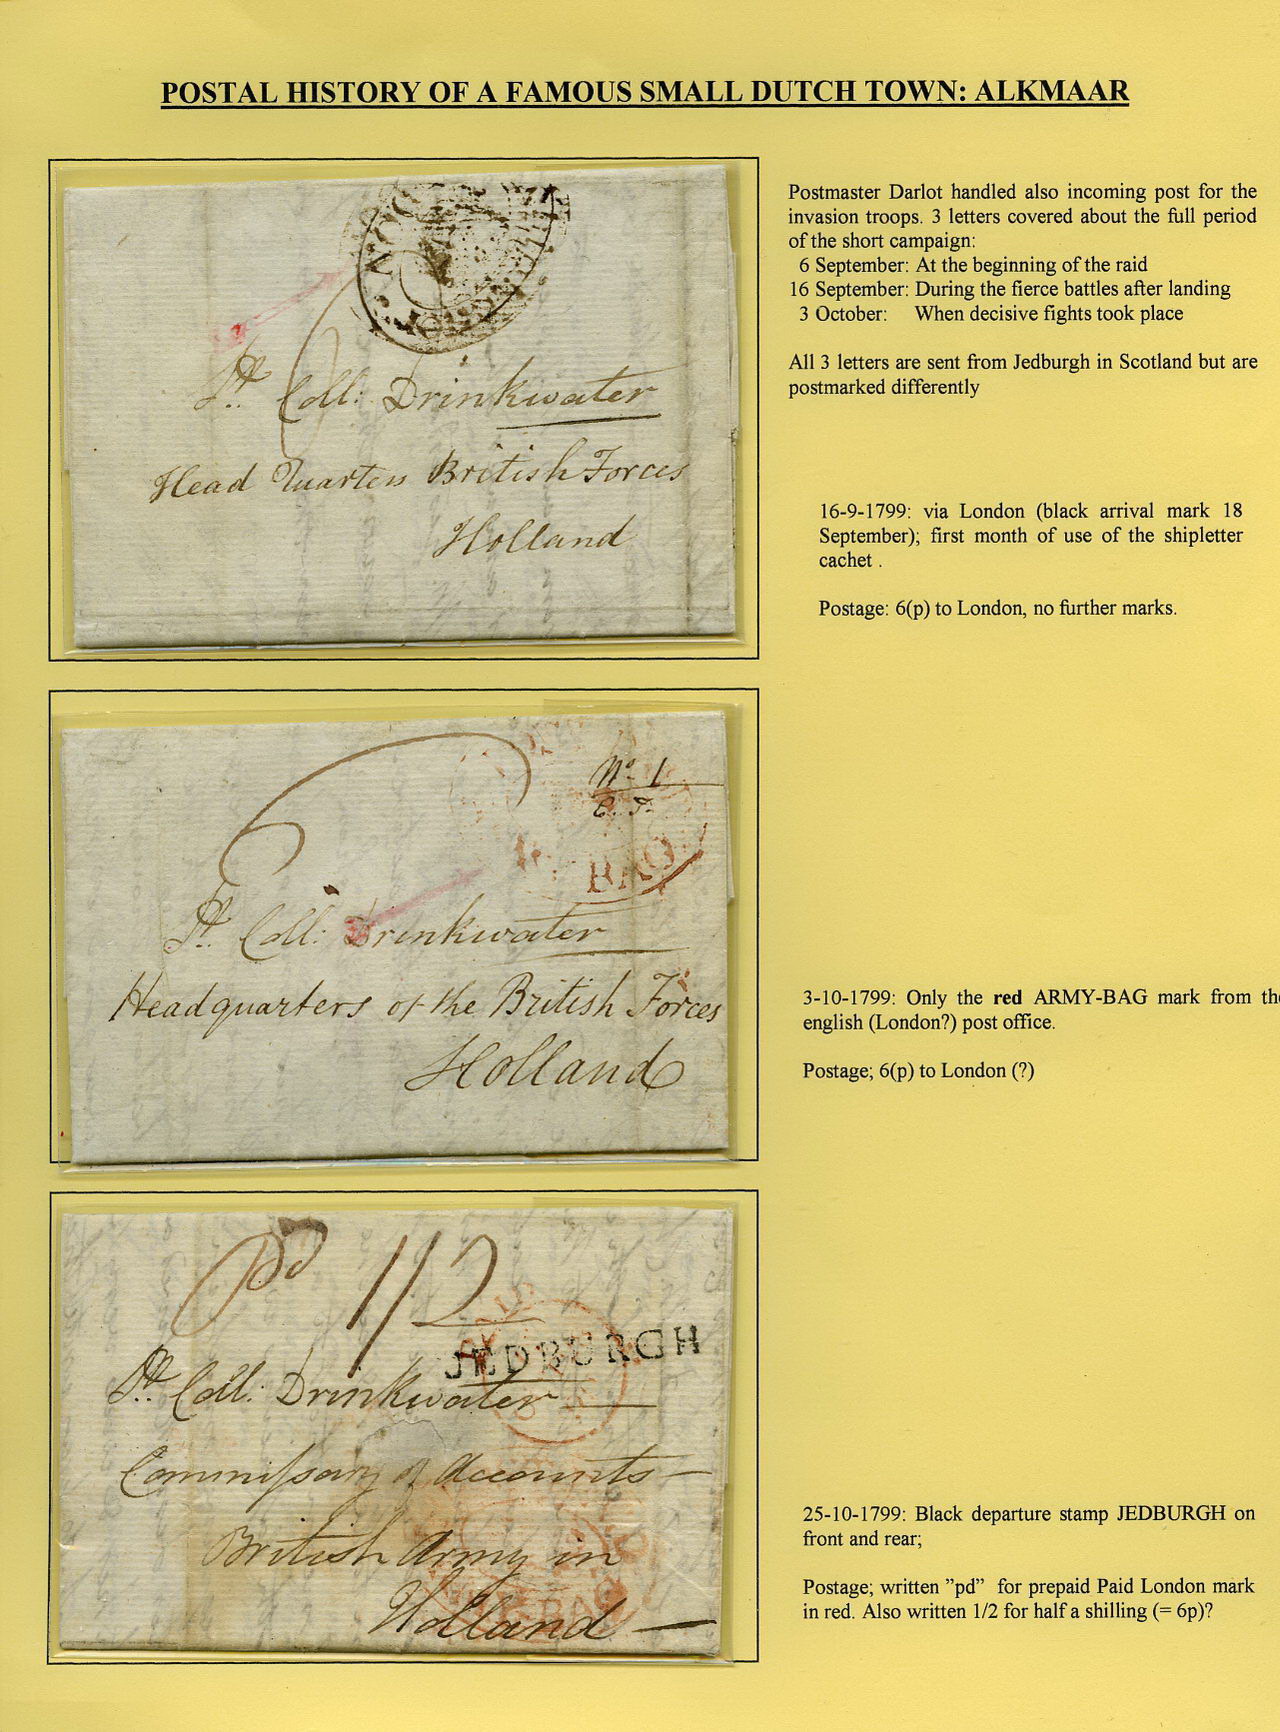 POSTAL HISTORY OF A FAMOUS SMALL DUTCH TOWN: ALKMAAR
Postmaster Darlot handled also incoming post for the
invasion troops. 3 letters covered about the full period
of the short campaign:
6 September: At the beginning of the raid
16 September: During the fierce battles after landing
3 October: When decisive fights took place
All 3 letters are sent from Jedburgh in Scotland but are
postmarked differently
Lt. Coll: Drinkwater
Head Quarters British Forces
Holland
16-9-1799: via London (black arrival mark 18
September); first month of use of the shipletter
cachet .
Postage: 6(p) to London, no further marks.
6
No. 1
BAG
Lt. Coll: Drinkwater
Headquarters of the British Forces
Holland
3-10-1799: Only the red ARMY-BAG mark from the
english (London?) post office.
Postage; 6(p) to London (?)
Pd 1/2
JEDBURGH
Lt. Coll: Drinkwater
Commissary of Accounts
British Army in
Holland
25-10-1799: Black departure stamp JEDBURGH on
front and rear;
Postage; written ”pd” for prepaid Paid London mark
in red. Also written 1/2 for half a shilling (= 6p)?